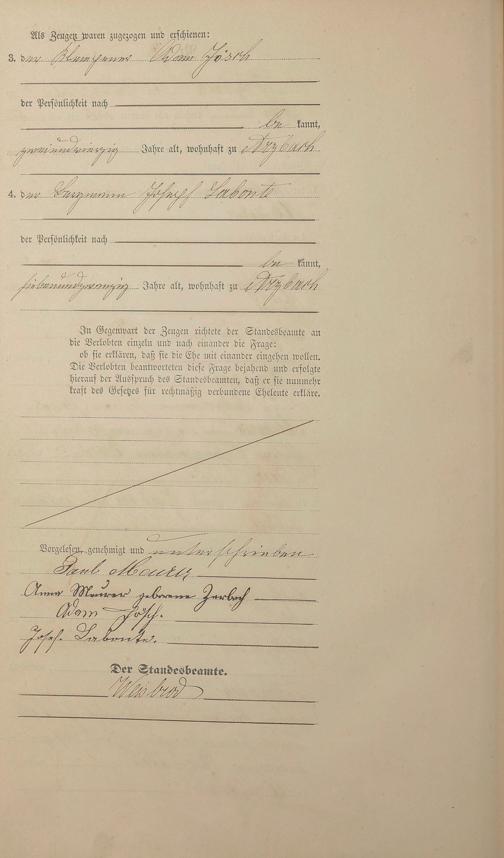 Als Zeugen waren zugezogen und erschienen:
3. der Klempner Adam Jösch
der Persönlichkeit nach
be kannt,
zweiundvierzig Jahre alt, wohnhaft zu Arzbach
4. der Bergmann Joseph Labonte
der Persönlichkeit nach
be kannt,
siebenundzwanzig Jahre alt, wohnhaft zu Arzbach
In Gegenwart der Zeugen richtete der Standesbeamte an
die Verlobten einzeln und nach einander die Frage:
ob sie erklären, daß sie die Ehe mit einander eingehen wollen.
Die Verlobten beantworteten diese Frage bejahend und erfolgte
hierauf der Ausspruch des Standesbeamten, daß er sie nunmehr
kraft des Gesetzes für rechtmäßig verbundene Eheleute erkläre.
Vorgelesen, genehmigt und unterschrieben
Paul Meurer
Anna Meurer geborene Zerbach
Adam Jösch.
Josef. Labonte.
Der Standesbeamte.
Weisbrod